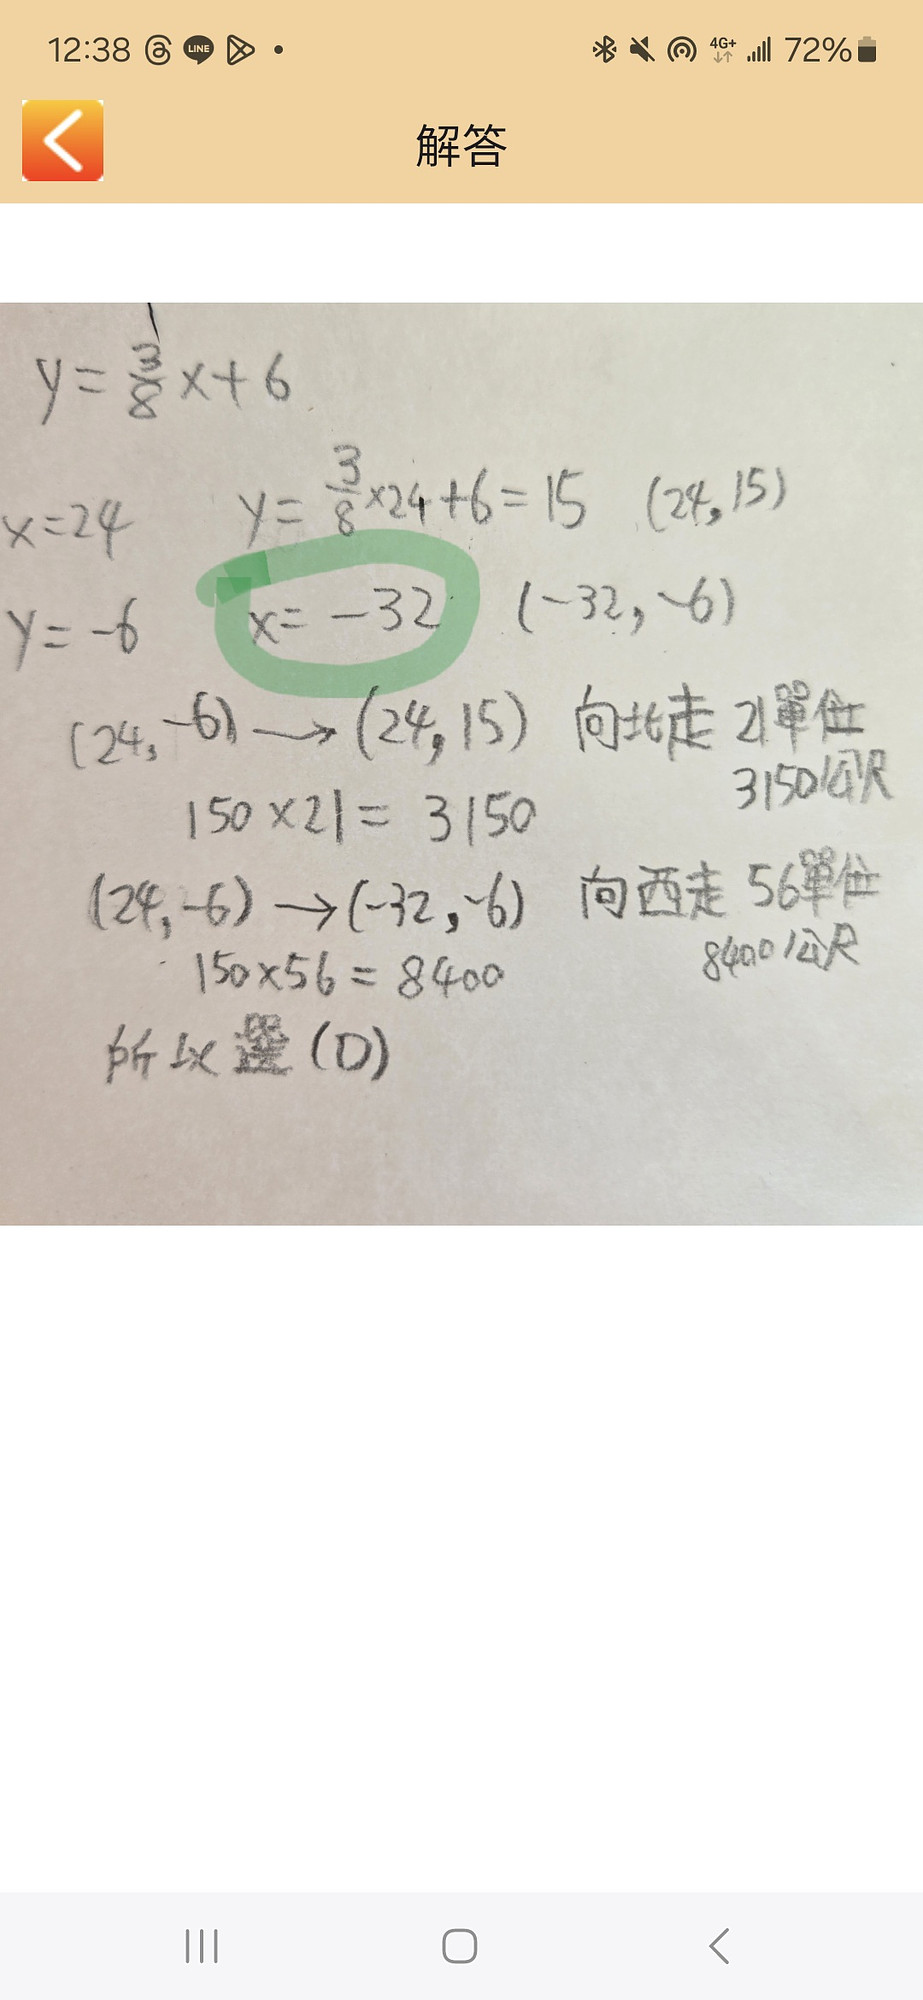 12:38 LINE 4G+ 72%
解答
y = 3/8 x + 6
x = 24 y = 3/8 × 24 + 6 = 15 (24, 15)
y = -6 x = -32 (-32, -6)
(24, -6) → (24, 15) 向北走 21單位
3150公尺
150 × 21 = 3150
(24, -6) → (-32, -6) 向西走 56單位
8400公尺
150 × 56 = 8400
所以選 (D)